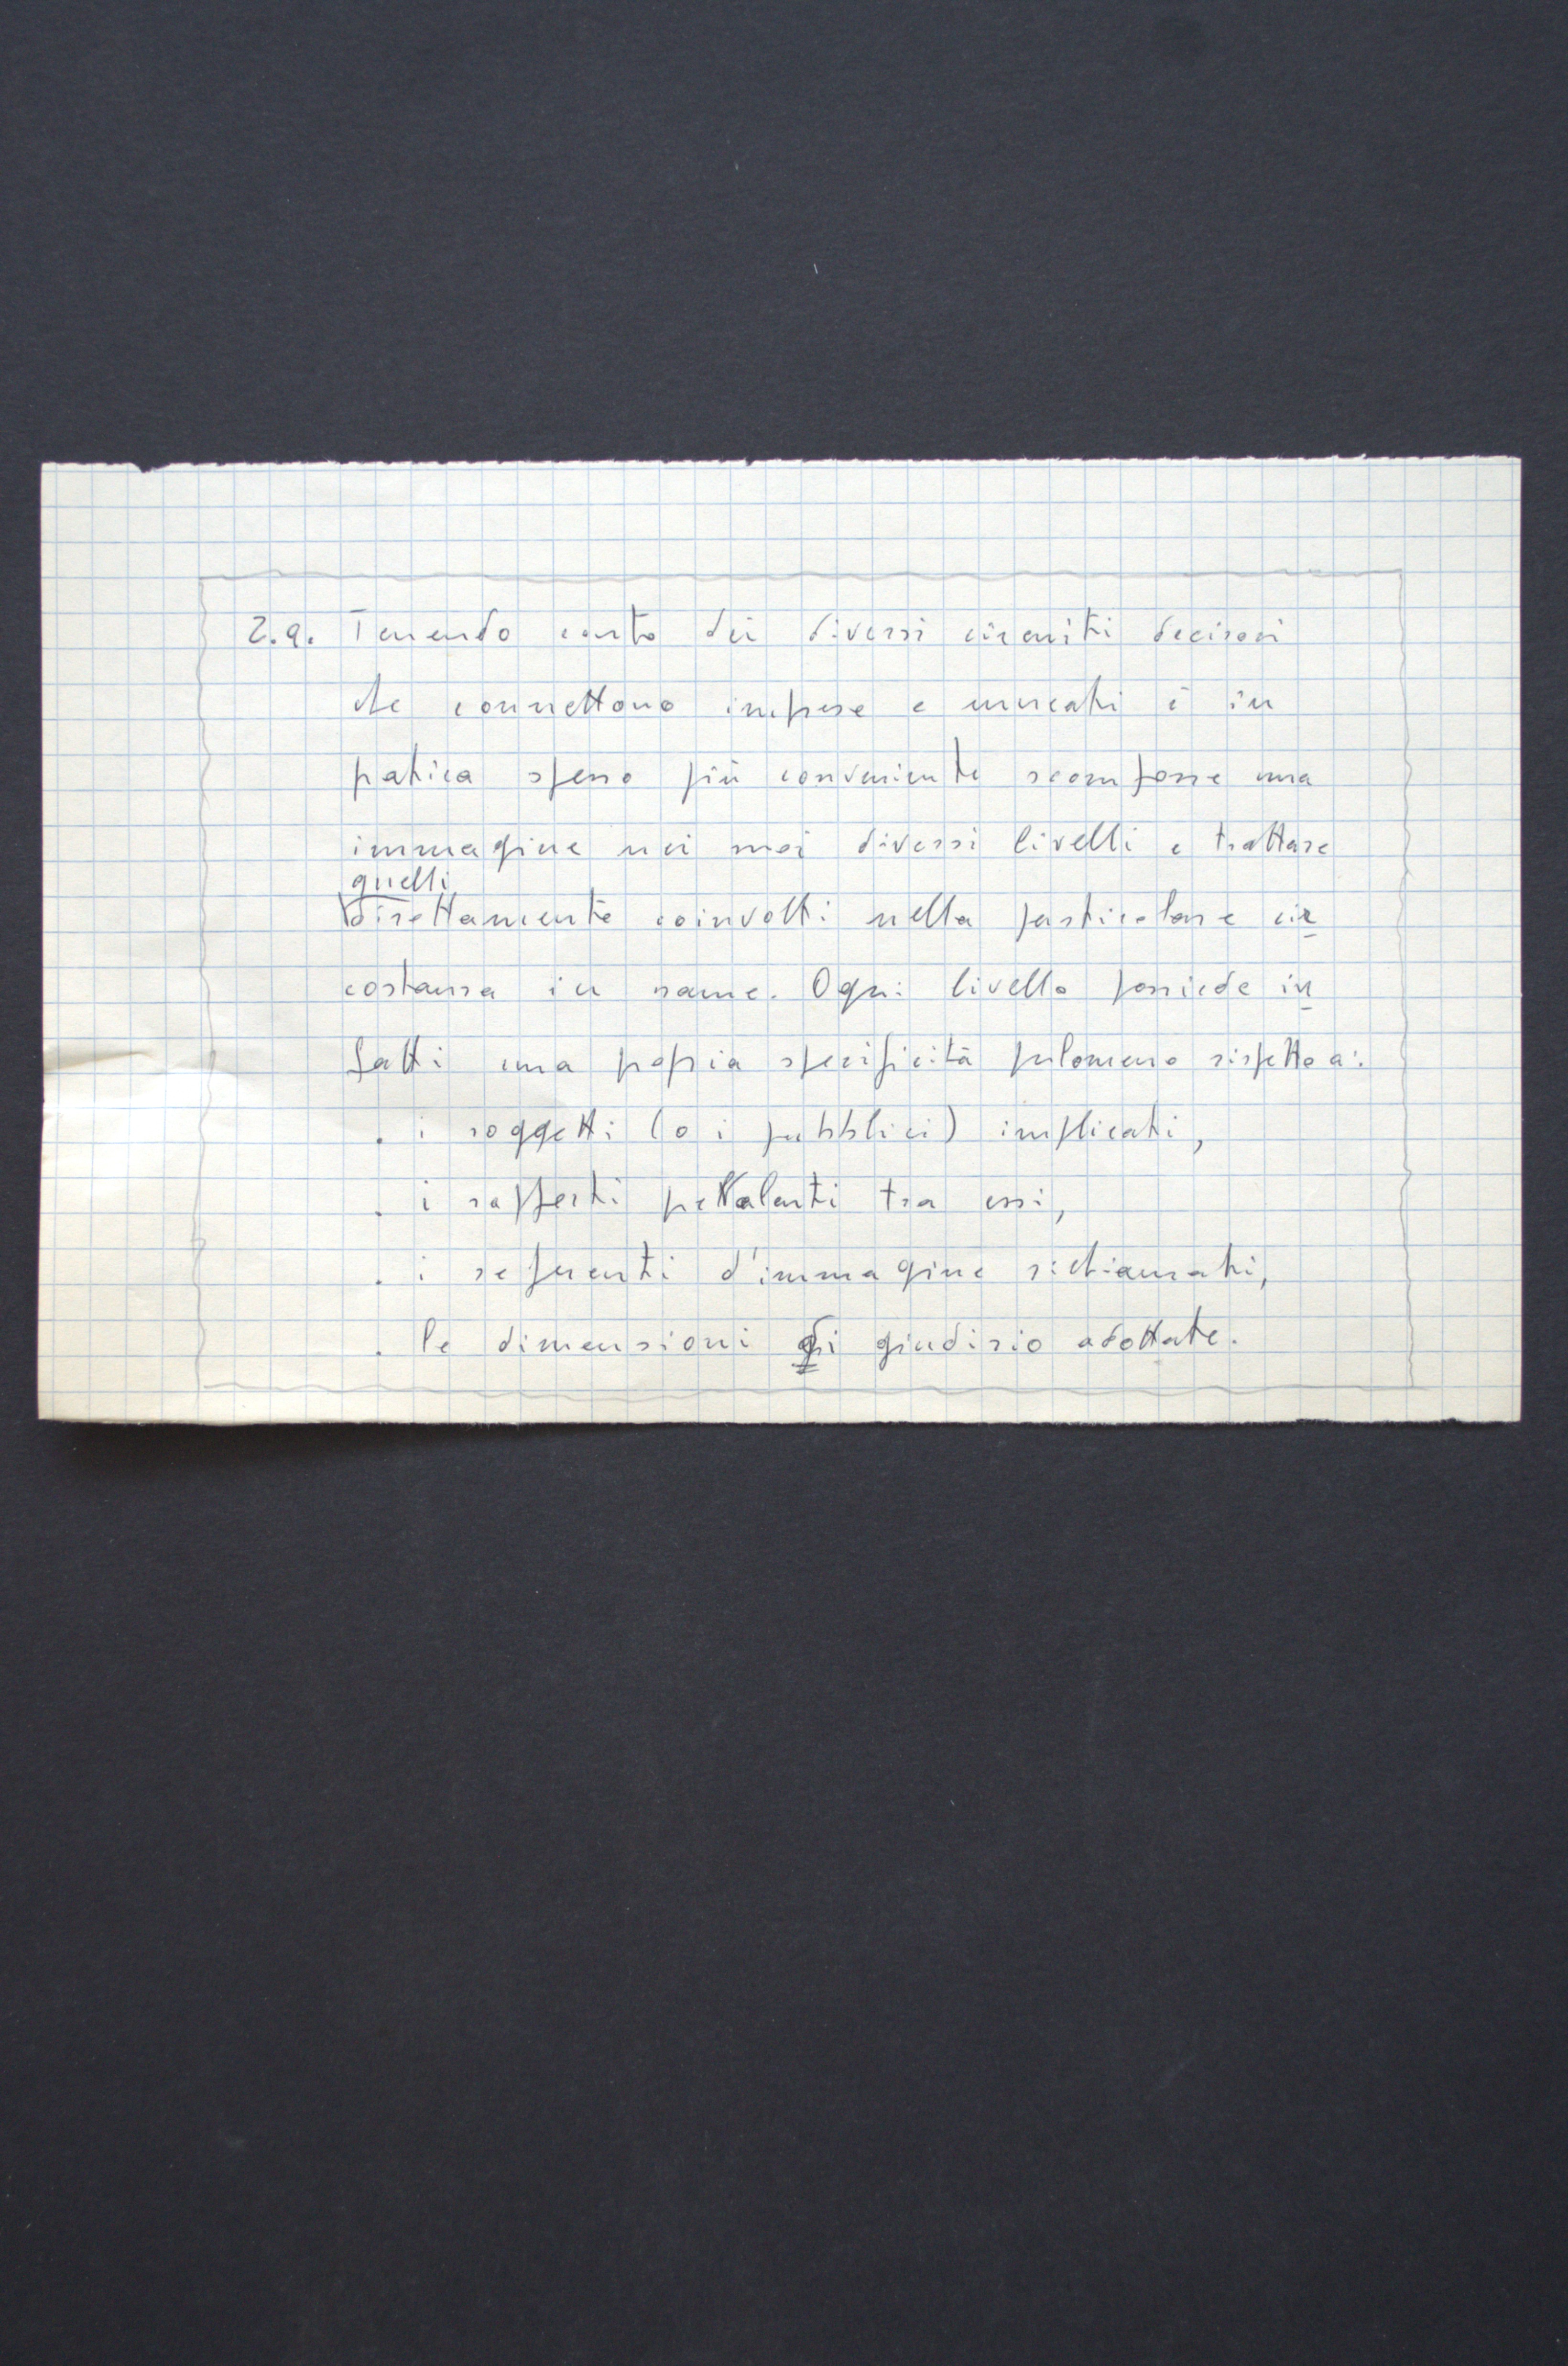 2.9. Tenendo conto dei diversi circuiti decisori
che connettono imprese e mercati è in
pratica spesso più conveniente scomporre una
immagine nei suoi diversi livelli e trattare
quelli
direttamente coinvolti nella particolare cir
costanza in esame. Ogni livello possiede in
fatti una propria specificità perlomeno rispetto a:
. i soggetti (o i pubblici) implicati,
. i rapporti prevalenti tra essi,
. i referenti d'immagine richiamati,
. le dimensioni di giudizio adottate.